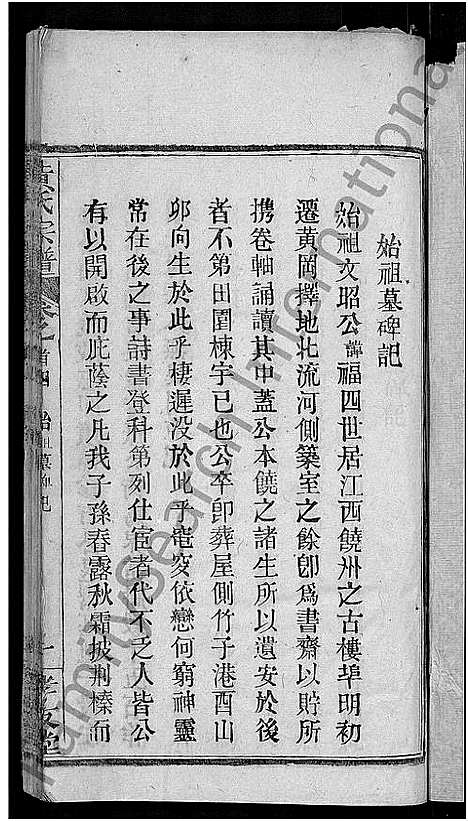 始祖墓碑記
始祖文昭公諱福四世居江西饒州之古樓埠明初
遷黃岡擇地北流河側築室之餘卽爲書齋以貯所
携卷軸誦讀其中蓋公本饒之諸生所以遺安於後
者不第田園棟宇已也公卒卽葬屋側竹子港酉山
卯向生於此乎棲遲没於此乎窀穸依戀何窮神靈
常在後之事詩書登科第列仕宦者代不乏人皆公
有以開啟而庇蔭之凡我子孫春露秋霜披荆榛而
黃氏宗譜 卷之首四 始祖墓碑記
FamilySearch International